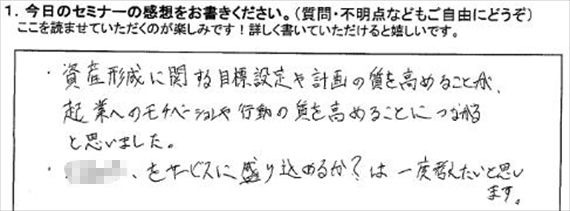 1. 今日のセミナーの感想をお書きください。(質問・不明点などもご自由にどうぞ)
ここを読ませていただくのが楽しみです!詳しく書いていただけると嬉しいです。
・資産形成に関する目標設定や計画の質を高めることが、
起業へのモチベーションや行動の質を高めることにつながる
と思いました。
・、をサービスに盛り込めるか?は一度考えたいと思い
ます。